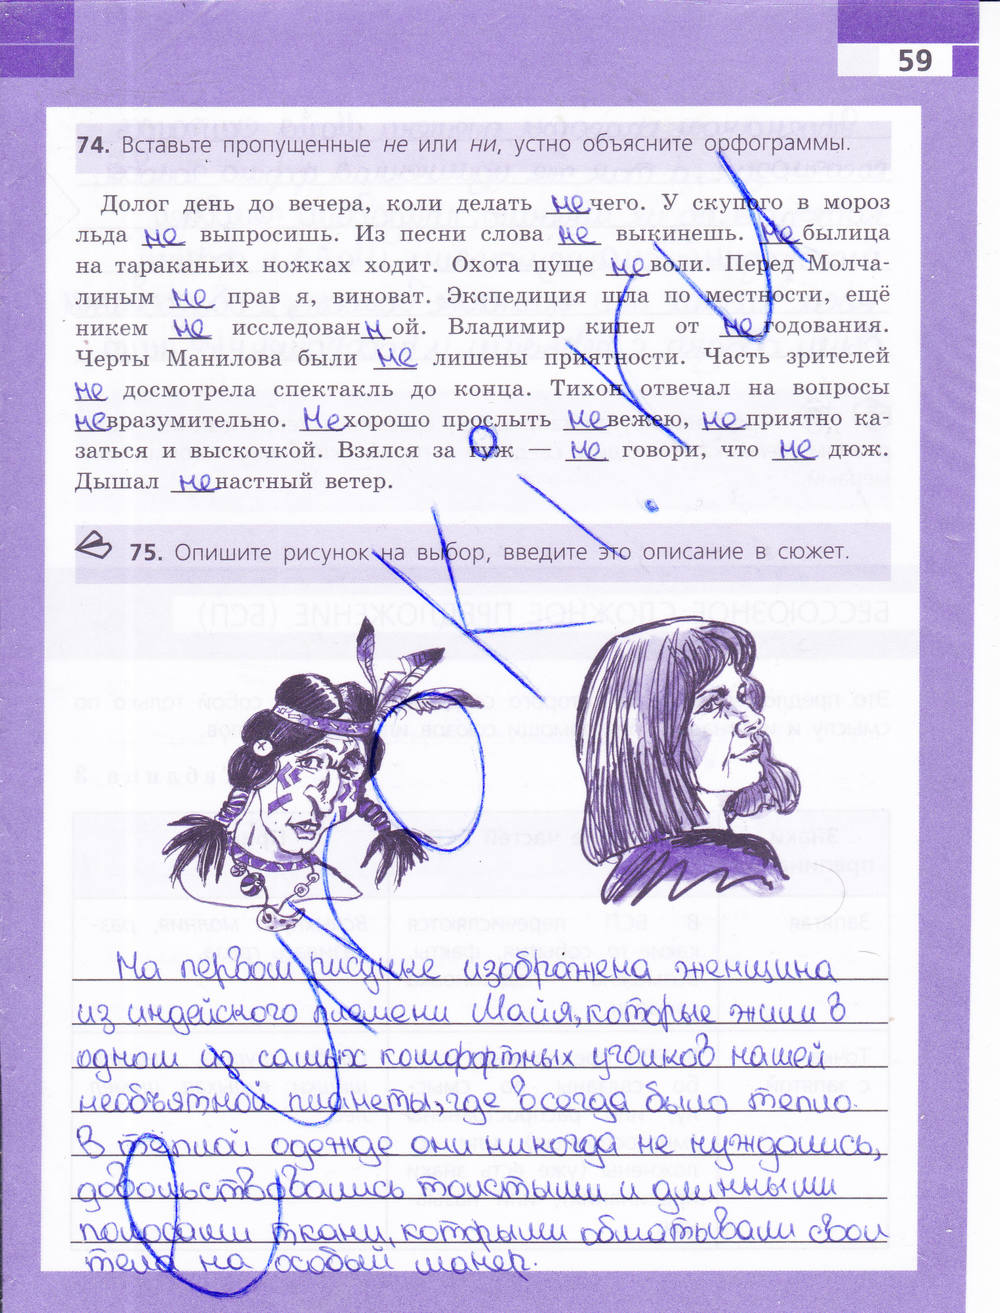 59
74. Вставьте пропущенные не или ни, устно объясните орфограммы.
Долог день до вечера, коли делать нечего. У скупого в мороз
льда не выпросишь. Из песни слова не выкинешь. Небылица
на тараканьих ножках ходит. Охота пуще неволи. Перед Молча-
линым не прав я, виноват. Экспедиция шла по местности, ещё
никем не исследованной. Владимир кипел от негодования.
Черты Манилова были не лишены приятности. Часть зрителей
не досмотрела спектакль до конца. Тихон отвечал на вопросы
невразумительно. Нехорошо прослыть невежею, неприятно ка-
заться и выскочкой. Взялся за гуж — не говори, что не дюж.
Дышал ненастный ветер.
75. Опишите рисунок на выбор, введите это описание в сюжет.
На первом рисунке изображена женщина
из индейского племени Майя, которые жили в
одном из самых комфортных уголков нашей
необъятной планеты, где всегда было тепло.
В тёплой одежде они никогда не нуждались,
довольствовались толстыми и длинными
полосами ткани, которыми обматывали свои
тела на особый манер.